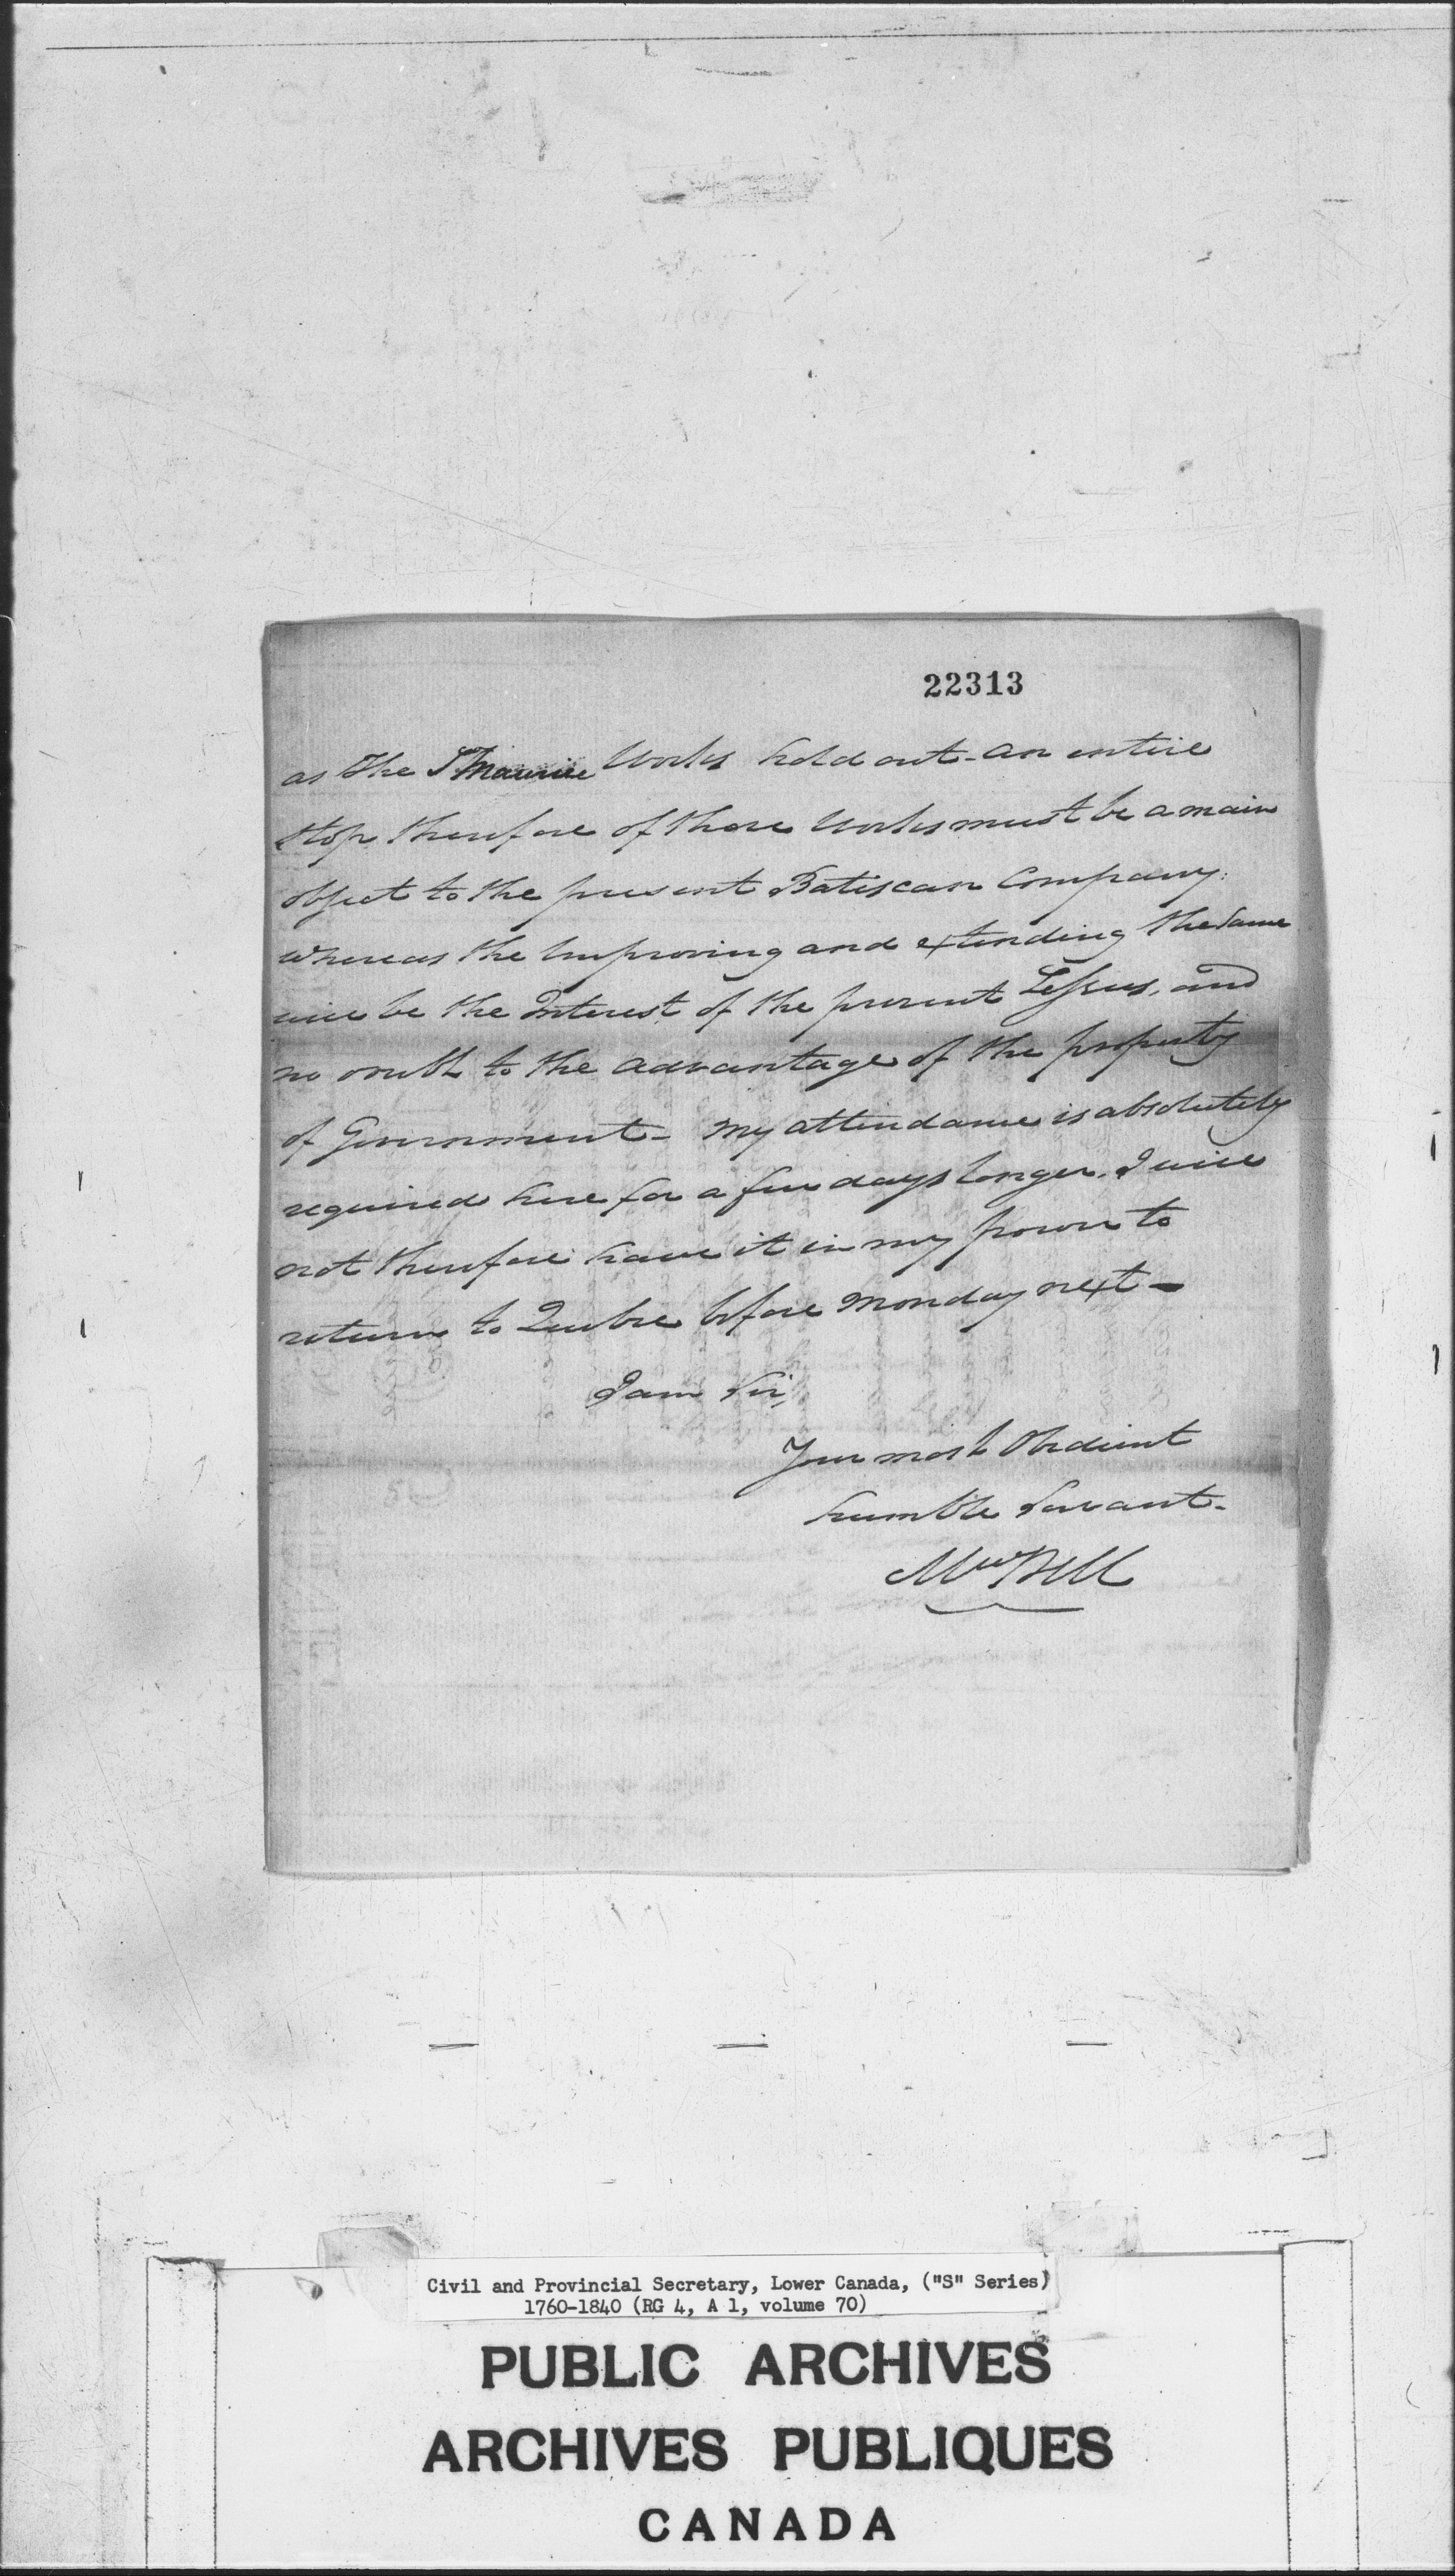 22313
as the St Maurice Works hold out - an entire
stop therefore of those Works must be a main
object to the present Batiscan Company:
whereas the Improving and extending the same
will be the Interest of the present Lessees, and
no doubt to the advantage of the property
of Government - My attendance is absolutely
required here for a few days longer. I will
not therefore have it in my power to
return to Quebec before Monday next -
I am Sir,
Your most Obedient
humble Servant -
Mw Bell
Civil and Provincial Secretary, Lower Canada, ("S" Series)
1760-1840 (RG 4, A 1, volume 70)
PUBLIC ARCHIVES
ARCHIVES PUBLIQUES
CANADA